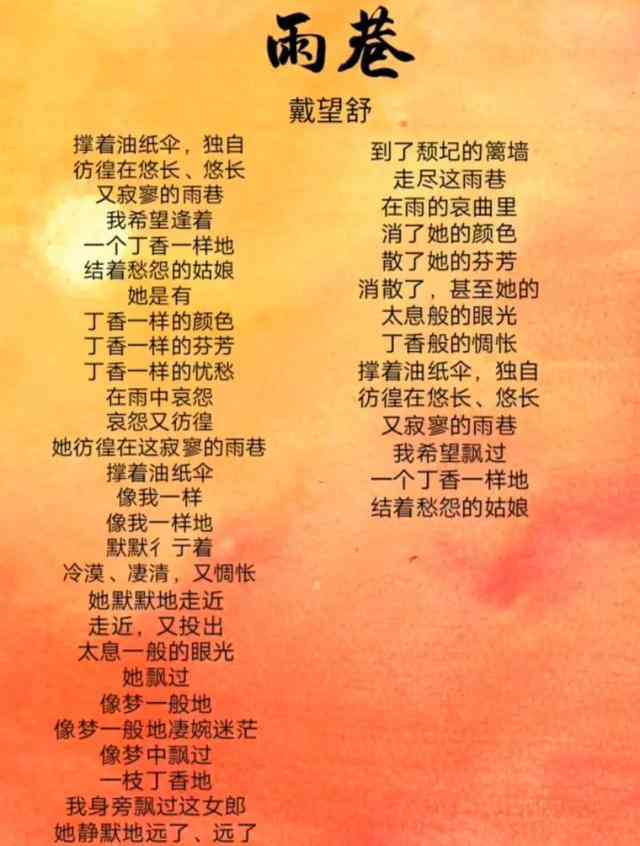 雨巷
戴望舒
撑着油纸伞，独自
彷徨在悠长、悠长
又寂寥的雨巷
我希望逢着
一个丁香一样地
结着愁怨的姑娘
她是有
丁香一样的颜色
丁香一样的芬芳
丁香一样的忧愁
在雨中哀怨
哀怨又彷徨
她彷徨在这寂寥的雨巷
撑着油纸伞
像我一样
像我一样地
默默彳亍着
冷漠、凄清，又惆怅
她默默地走近
走近，又投出
太息一般的眼光
她飘过
像梦一般地
像梦一般地凄婉迷茫
像梦中飘过
一枝丁香地
我身旁飘过这女郎
她静默地远了、远了
到了颓圮的篱墙
走尽这雨巷
在雨的哀曲里
消了她的颜色
散了她的芬芳
消散了，甚至她的
太息般的眼光
丁香般的惆怅
撑着油纸伞，独自
彷徨在悠长、悠长
又寂寥的雨巷
我希望飘过
一个丁香一样地
结着愁怨的姑娘